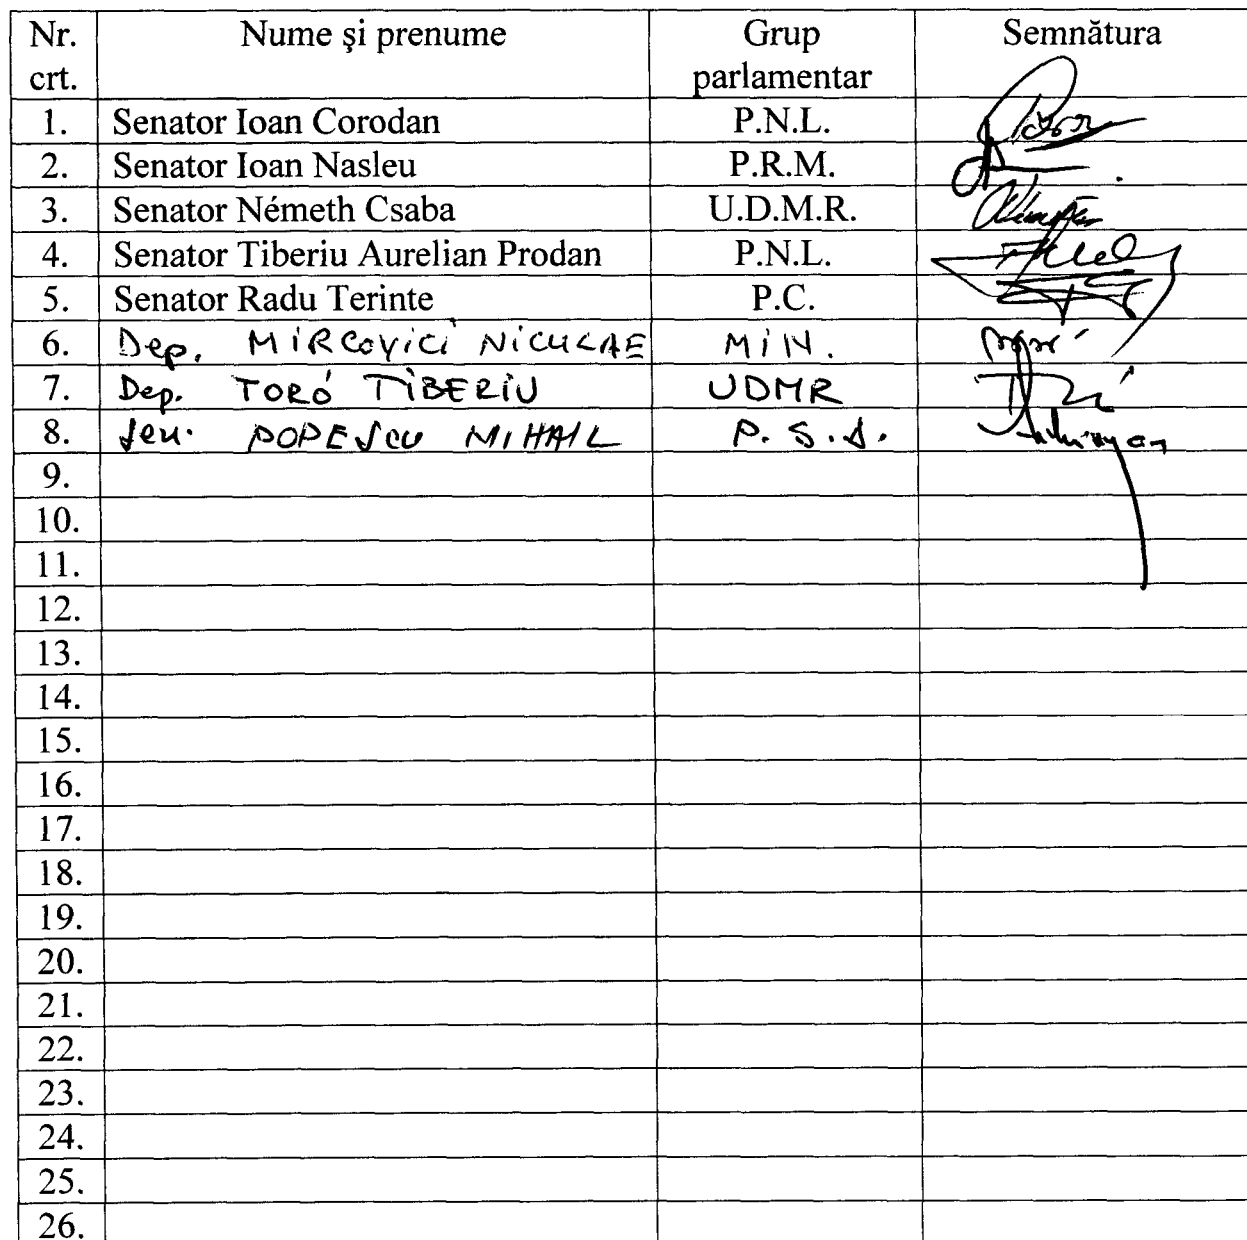 Nr. crt. Nume şi prenume Grup parlamentar Semnătura
1. Senator Ioan Corodan P.N.L.
2. Senator Ioan Nasleu P.R.M.
3. Senator Németh Csaba U.D.M.R.
4. Senator Tiberiu Aurelian Prodan P.N.L.
5. Senator Radu Terinte P.C.
6. Dep. MIRCOVICI NICULAE MIN.
7. Dep. TORÓ TIBERIU UDMR
8. Sen. POPESCU MIHAIL P.S.D.
9.
10.
11.
12.
13.
14.
15.
16.
17.
18.
19.
20.
21.
22.
23.
24.
25.
26.